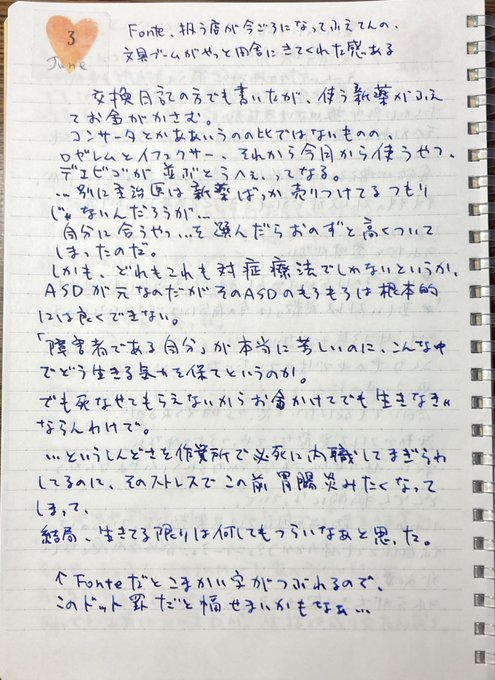 3
June
Fonte、扱う店が今ごろになってふえてんの、
文具ブームがやっと田舎にきてくれた感ある
交換日記の方でも書いたが、使う新薬がふえ
てお金がかさむ。
コンサータとかああいうのの比ではないものの、
ロゼレムとイフェクサー、それから今月から使うやつ、
デエビゴが並ぶとうへぇ、ってなる。
…別に主治医は新薬ばっか売りつけてるつもり
じゃないんだろうが…
自分に合うやつ…を選んだらおのずと高くついて
しまったのだ。
しかも、どれもこれも対症療法でしかないというか、
ASDが元なのだがそのASDのもろもろは根本的
には良くできない。
「障害者である自分」が本当に苦しいのに、こんな中
でどう生きる気力を保てというのか。
でも死なせてもらえないからお金かけてでも生きなきゃ
ならんわけで。
…というしんどさを作業所で必死に内職してまぎらわ
してるのに、そのストレスでこの前胃腸炎みたくなって
しまって、
結局、生きてる限りは何してもつらいなあと思った。
↑Fonteだとこまかい字がつぶれるので、
このドット罫だと幅せまいかもなぁ…